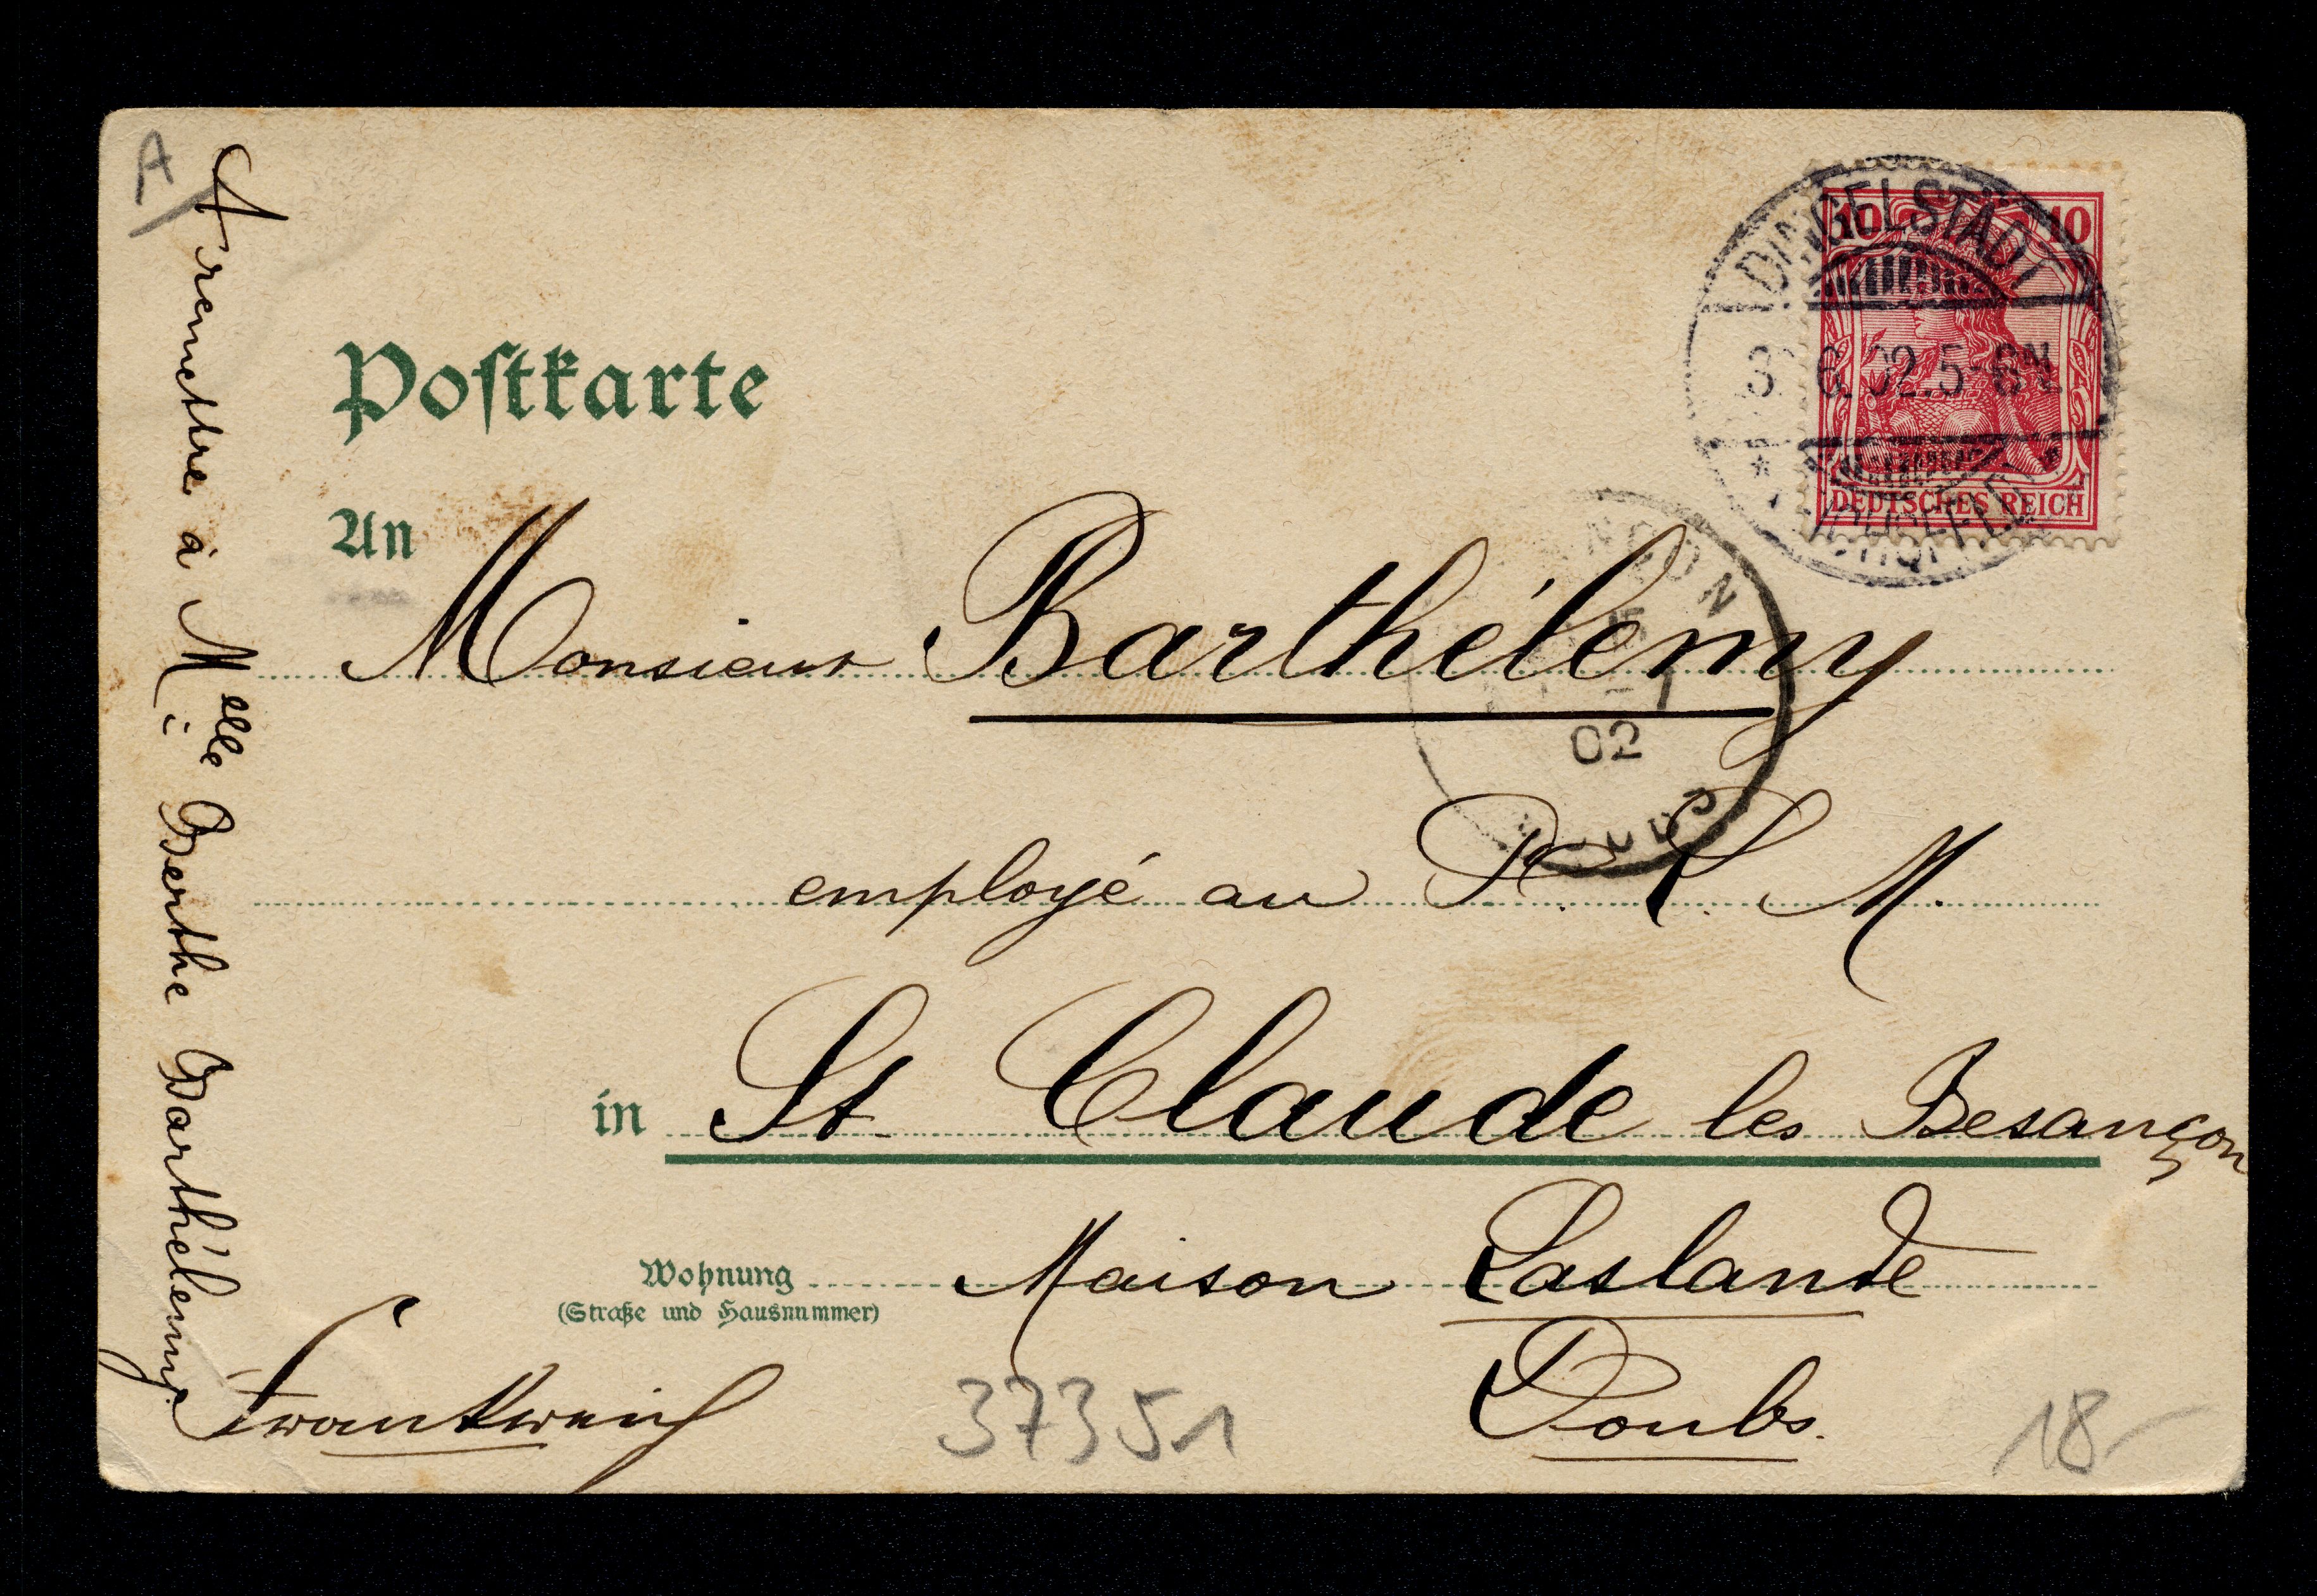 A
A remettre à Melle Berthe Barthélemy.
Postkarte
10 10
DINGELSTÄDT
3 6.02.5-6N.
DEUTSCHES REICH
An
Monsieur Barthélemy
02
employé au P. L. M.
in St. Claude les Besançon
Wohnung Maison Laslande
(Straße und Hausnummer)
Frankreich
Doubs.
37351
18-